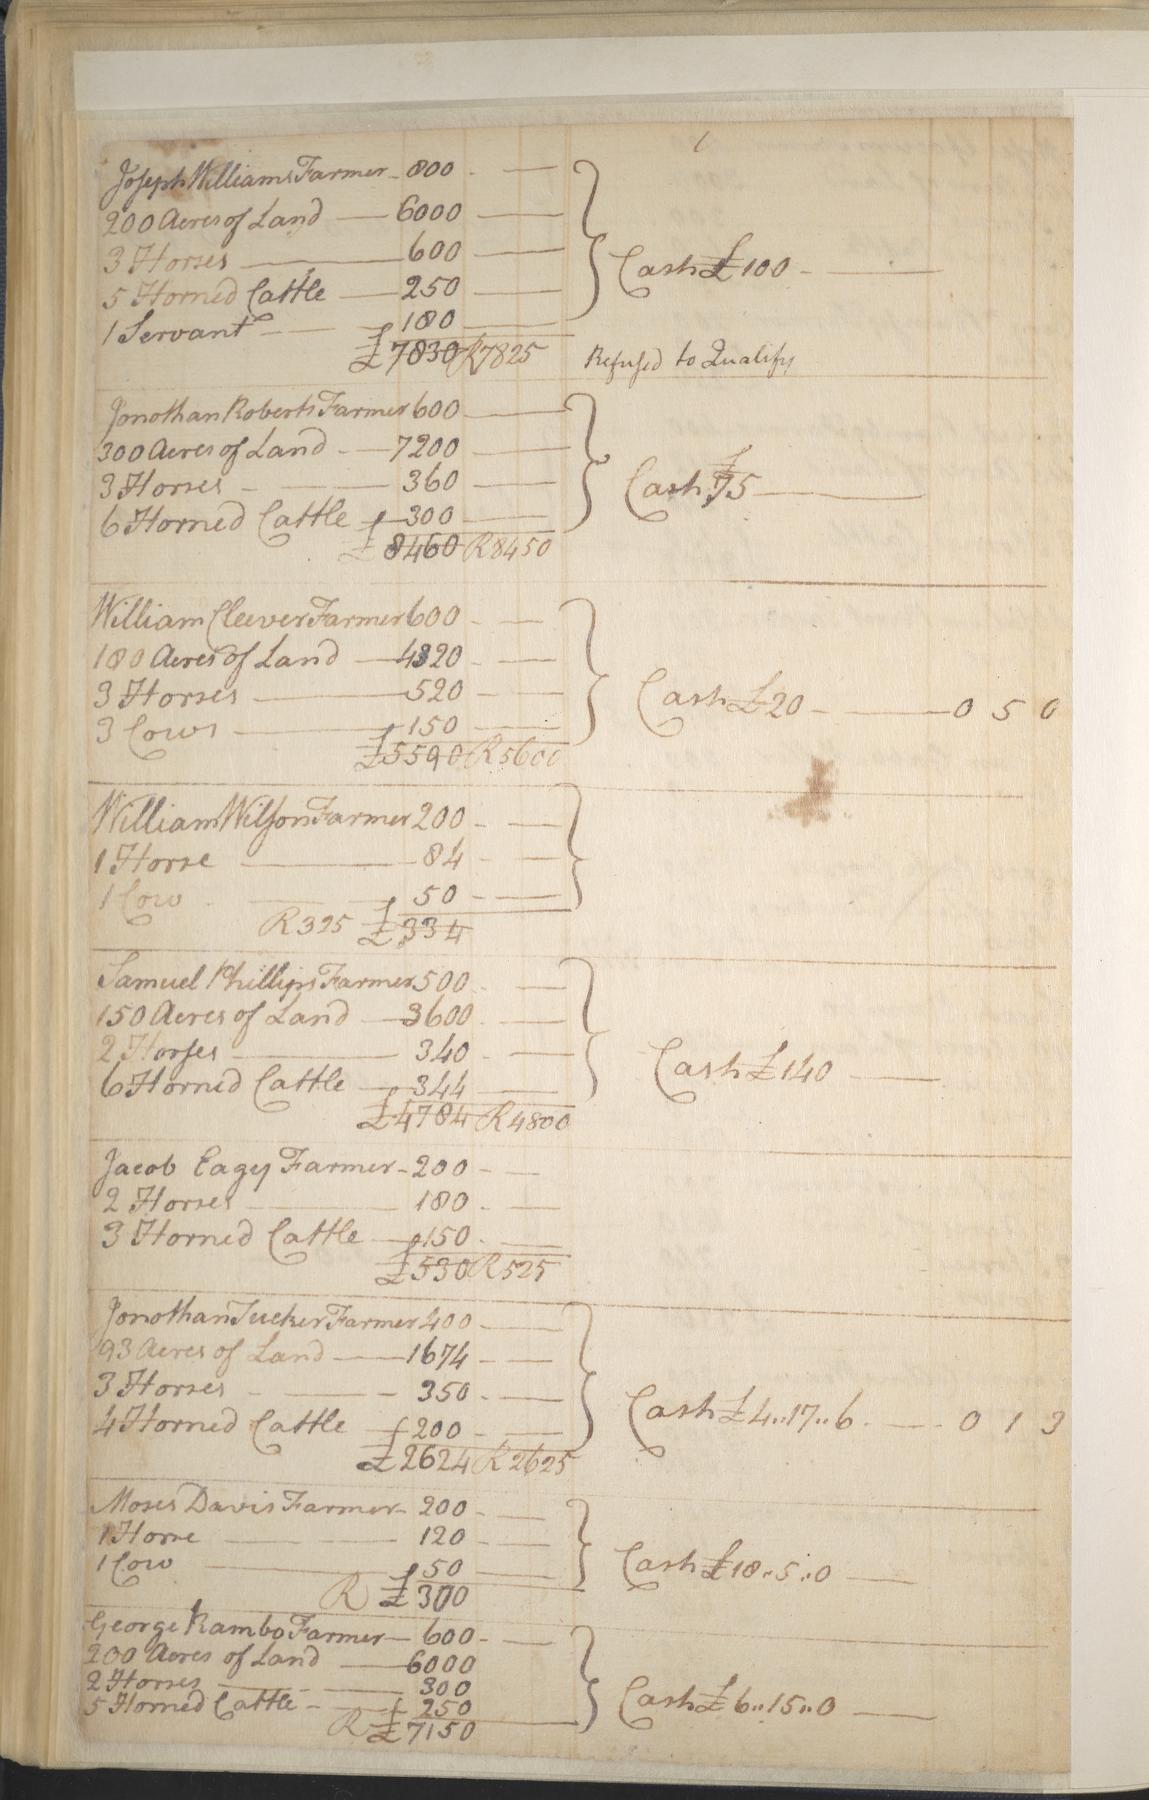 Joseph Williams Farmer - 800 - —
200 Acres of Land — 6000 —
3 Horses — 600 —
Cash £100 - —
5 Horned Cattle — 250 —
1 Servant — 180 —
£7830 R7825
Refused to Qualify
Jonothan Roberts Farmer 600 —
300 Acres of Land - — 7200 —
3 Horses - — 360 —
Cash £75 —
6 Horned Cattle — 300 —
£8460 R8450
William Cleever Farmer 600 - —
180 Acres of Land — 4320 - —
3 Horses — 520 - —
Cash £20 - — 0 5 0
3 Cows — 150 —
£5590 R5600
William Wilson Farmer 200 - —
1 Horse — 84 - —
1 Cow - — 50 - —
R325 £334
Samuel Phillips Farmer 500 - —
150 Acres of Land — 3600 - —
2 Horses — 340 - —
Cash £140 —
6 Horned Cattle — 344 —
£4784 R4800
Jacob Eagy Farmer - 200 - —
2 Horses — 180 - —
3 Horned Cattle — 150 - —
£530 R525
Jonothan Tucker Farmer 400 - —
93 Acres of Land — 1674 - —
3 Horses - — - 350 - —
Cash £4..17..6 - — 0 1 3
4 Horned Cattle — 200 - —
£2624 R2625
Moses Davis Farmer - 200 - —
1 Horse — 120 - —
Cash £18..5..0 —
1 Cow — 50 —
R £300
George Rambo Farmer — 600 - —
200 Acres of Land — 6000
2 Horses — 300
Cash £6..15..0 —
5 Horned Cattle - — 250
R £7150